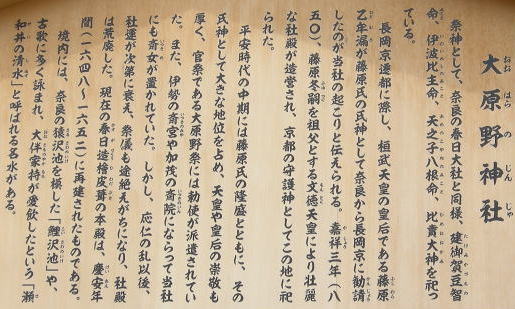 大原野神社
祭神として、奈良の春日大社と同様、建御賀豆智
命、伊波比主命、天之子八根命、比賣大神を祀っ
ている。
長岡京遷都に際し、桓武天皇の皇后である藤原
乙牟漏が藤原氏の氏神として奈良から長岡京に勧請
したのが当社の起こりと伝えられる。嘉祥三年(八
五〇)、藤原冬嗣を祖父とする文徳天皇により壮麗
な社殿が造営され、京都の守護神としてこの地に祀
られた。
平安時代の中期には藤原氏の隆盛とともに、その
氏神として大きな地位を占め、天皇や皇后の崇敬も
厚く、官祭である大原野祭には勅使が派遣されてい
た。また、伊勢の斎宮や加茂の斎院にならって当社
にも斎女が置かれていた。しかし、応仁の乱以後、
社運が次第に衰え、祭儀も途絶えがちになり、社殿
は荒廃した。現在の春日造檜皮葺の本殿は、慶安年
間(一六四八~一六五二)に再建されたものである。
境内には、奈良の猿沢池を模した「鯉沢池」や、
古歌に多く詠まれ、大伴家持が愛飲したという「瀬
和井の清水」と呼ばれる名水がある。